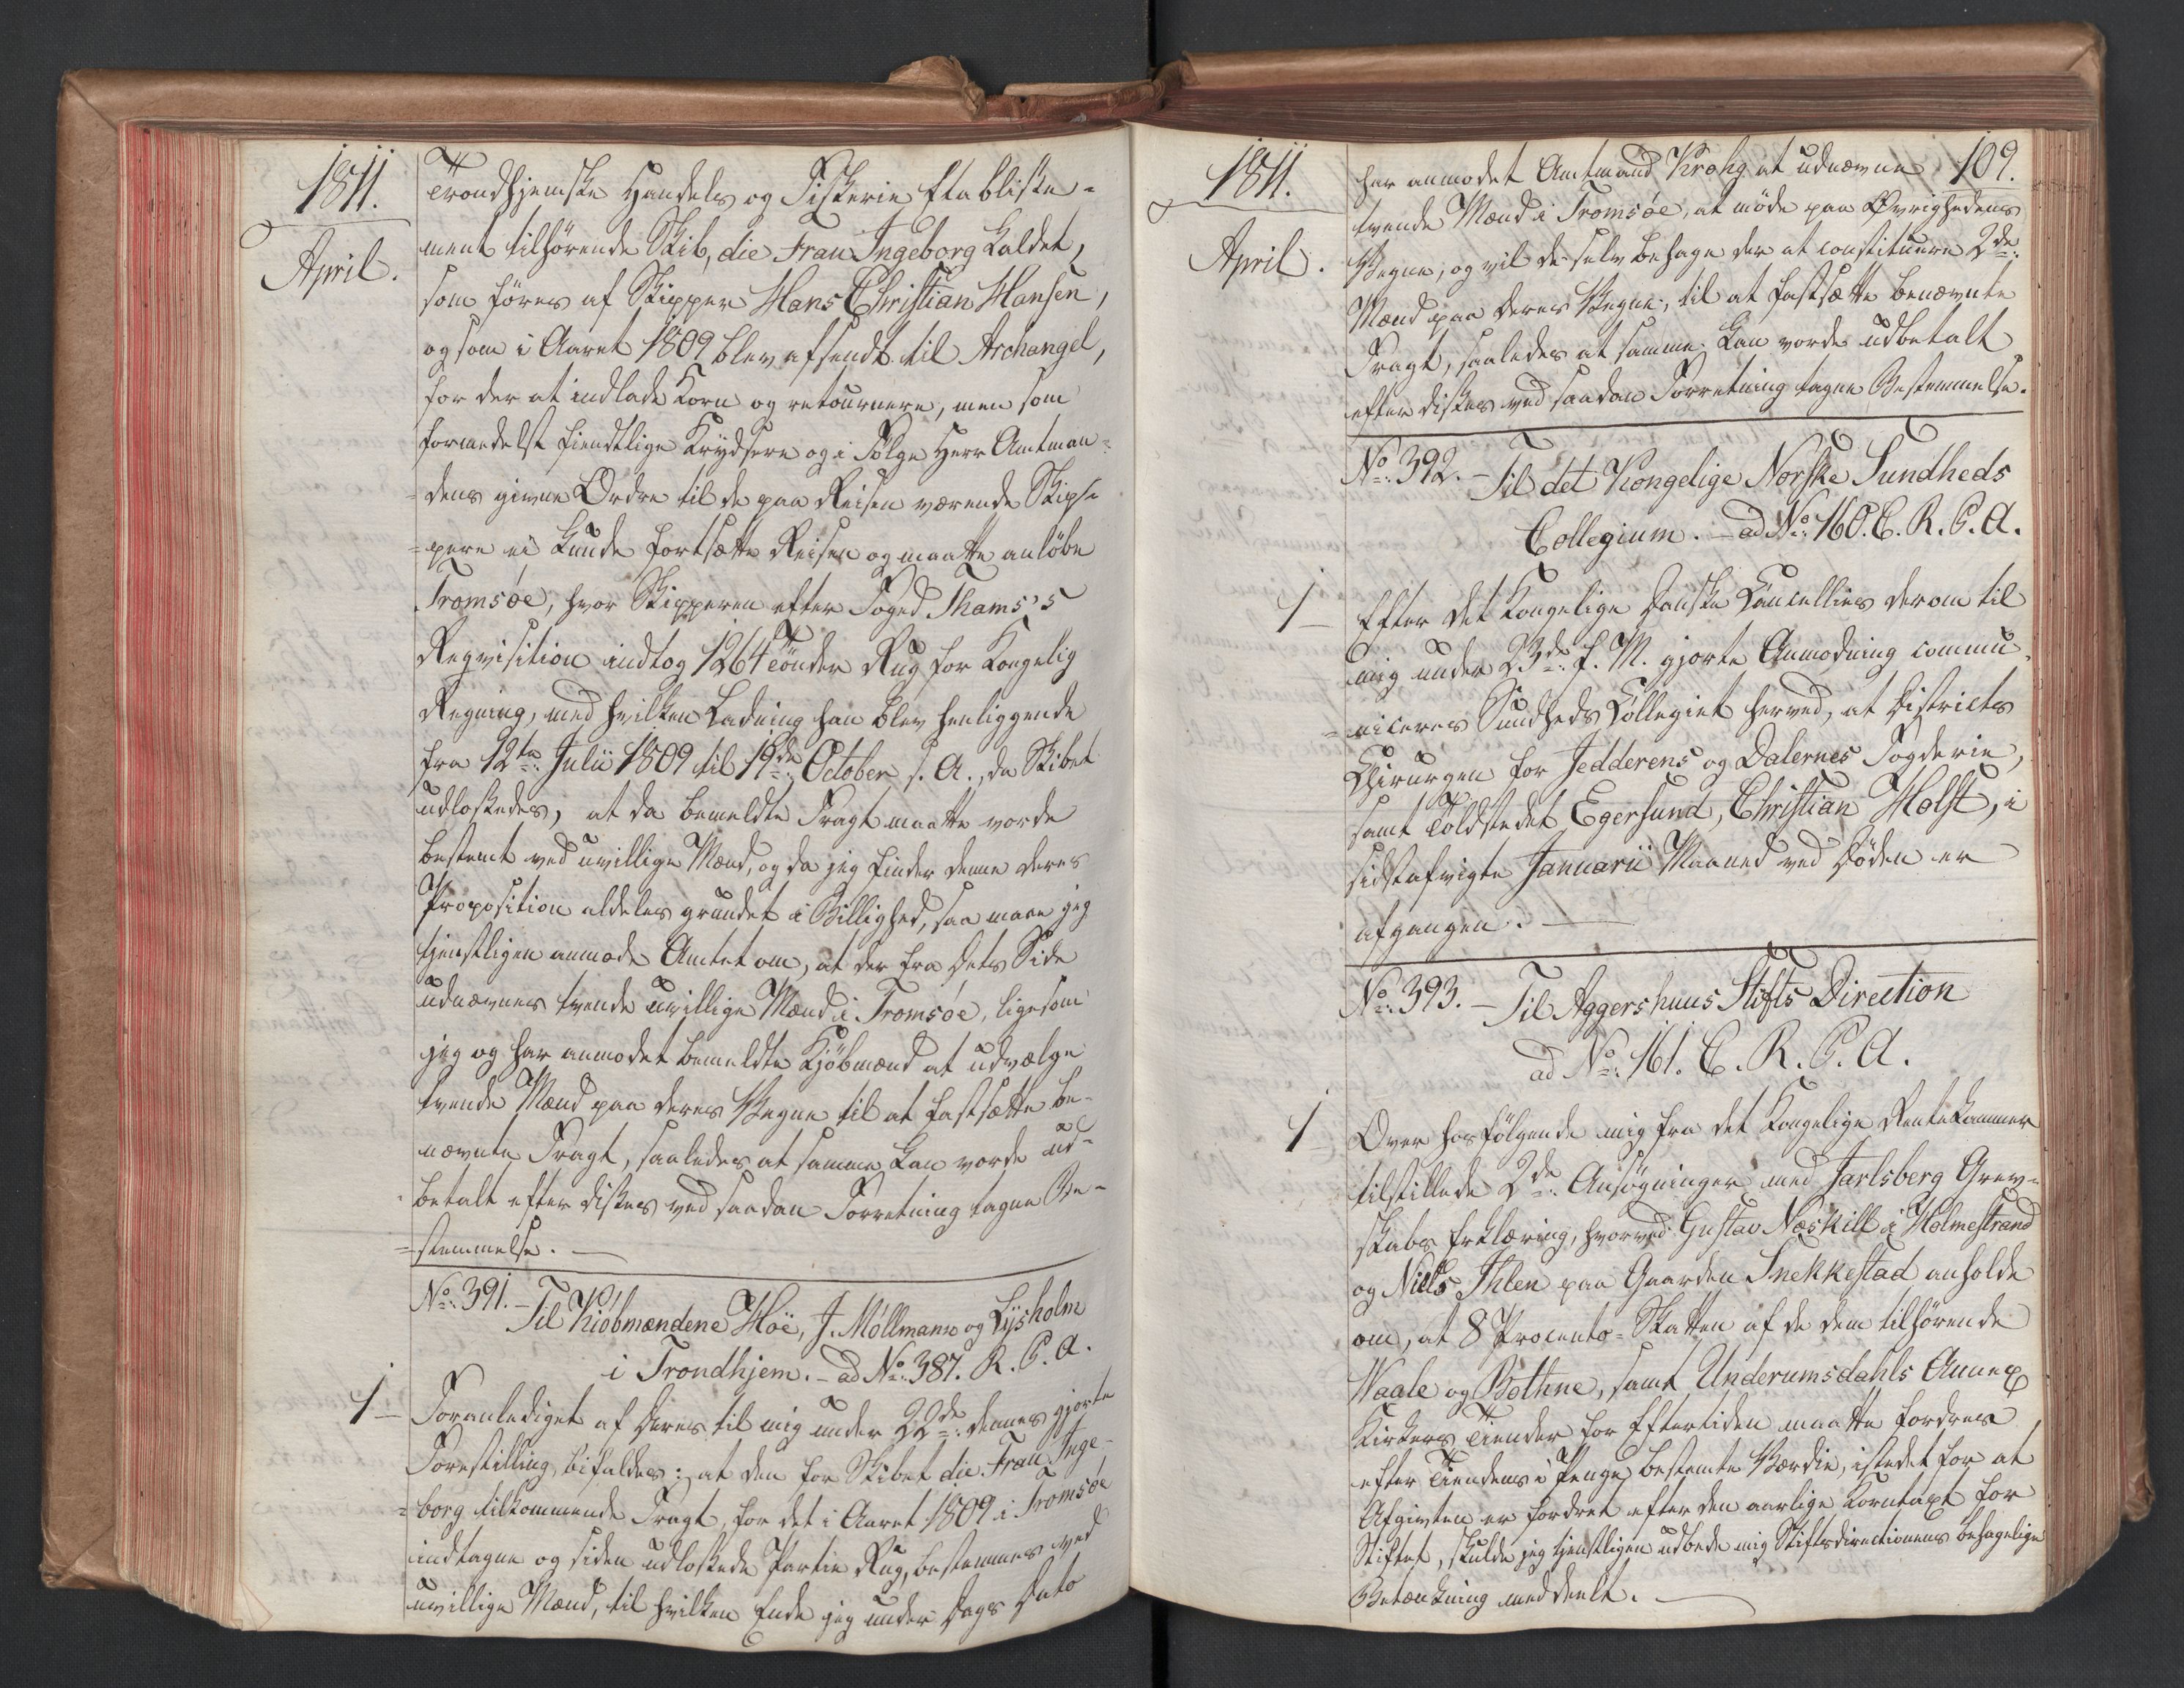 1811.
April.
Trondhjemske Handels og Fiskerie Etablisse-
ment tilhörende Skib, die Frau Ingeborg kaldet,
som föres af Skipper Hans Christian Hansen,
og som i Aaret 1809 blev afsendt til Archangel,
for der at indlade Korn og retournere, men som
formedelst fiendtlige Krydsere og i Fölge Herr Amtman-
=dens givne Ordre til de paa Reisen værende Skip-
=pere ei kunde fortsætte Reisen og maatte anlöbe
Tromsöe, hvor Skipperen efter Foged Thams's
Reqvisition indtog 1264 Tönder Rug for Kongelig
Regning, med hvilken Ladning han blev henliggende
fra 12te Julii 1809 til 19de October s. A., da Skibet
udlossedes, at da bemeldte Fragt maatte vorde
bestemt ved uvillige Mænd, og da jeg finder denne deres
Proposition aldeles grundet i Billighed, saa maae jeg
tjenstligen anmode Amtet om, at der fra dets Side
udnævnes tvende uvillige Mænd i Tromsöe, ligesom
jeg og har anmodet bemeldte Kjöbmænd at udvælge
tvende Mænd paa deres Vegne til at fastsætte be-
nævnte Fragt, saaledes at samme kan vorde ud-
=betalt efter disses ved saadan Forretning tagne Be-
=stemmelse.
No. 391. - Til Kiöbmændene Höe, J. Möllmann og Lysholm
i Trondhjem. - ad No. 387. R. C. A.
1 - Foranlediget af Deres til mig under 22de dennes gjorte
Forestilling, bifaldes: at den for Skibet die Frau Inge-
=borg tilkommende Fragt, for det i Aaret 1809 i Tromsöe
indtagne og siden udlossede Partie Rug, bestemmes ved
uvillige Mænd, til hvilken Ende jeg under Dags Dato
1811.
April.
109.
har anmodet Amtmand Krohg at udnævne
tvende Mænd i Tromsöe, at möde paa Övrighedens
Vegne, og vil de selv behage der at constituere 2de
Mænd paa deres Vegne, til at fastsætte benævnte
Fragt, saaledes at samme kan vorde udbetalt
efter disses ved saadan Forretning tagne Bestemmelse.
No. 392. - Til det Kongelige Norske Sundheds
Collegium. - ad No. 160. C. R. C. A.
1 - Efter det Kongelige Danske Cancellies derom til
mig under 23de f. M. gjorte Anmodning commu-
=niceres Sundheds Collegiet herved, at Districts
Chirurgen for Jedderens og Dalernes Fogderie,
samt Toldstedet Egersund, Christian Holst, i
sidstafvigte Januarii Maaned ved Döden er
afgangen.
No. 393. - Til Aggershuus Stifts Direction
ad No. 161. C. R. C. A.
1 Over hosfölgende mig fra det Kongelige Rentekammer
tilstillede 2de Ansögninger med Jarlsberg Grev-
skabs Erklæring, hvorved Gustav Næskill i Holmestrand
og Niels Ihlen paa Gaarden Snekkestad anholde
om, at 8 Procento-Skatten af de dem tilhörende
Waale og Bothne, samt Underumsdahls Annex
Kirkers Tiender for Eftertiden maatte fordres
efter Tiendens i Penge bestemte Værdie, istedet for at
Afgivten er fordret efter den aarlige Korntaxt for
Stiftet, skulde jeg tjenstligen udbede mig Stiftsdirectionens behagelige
Betænkning meddeelt.